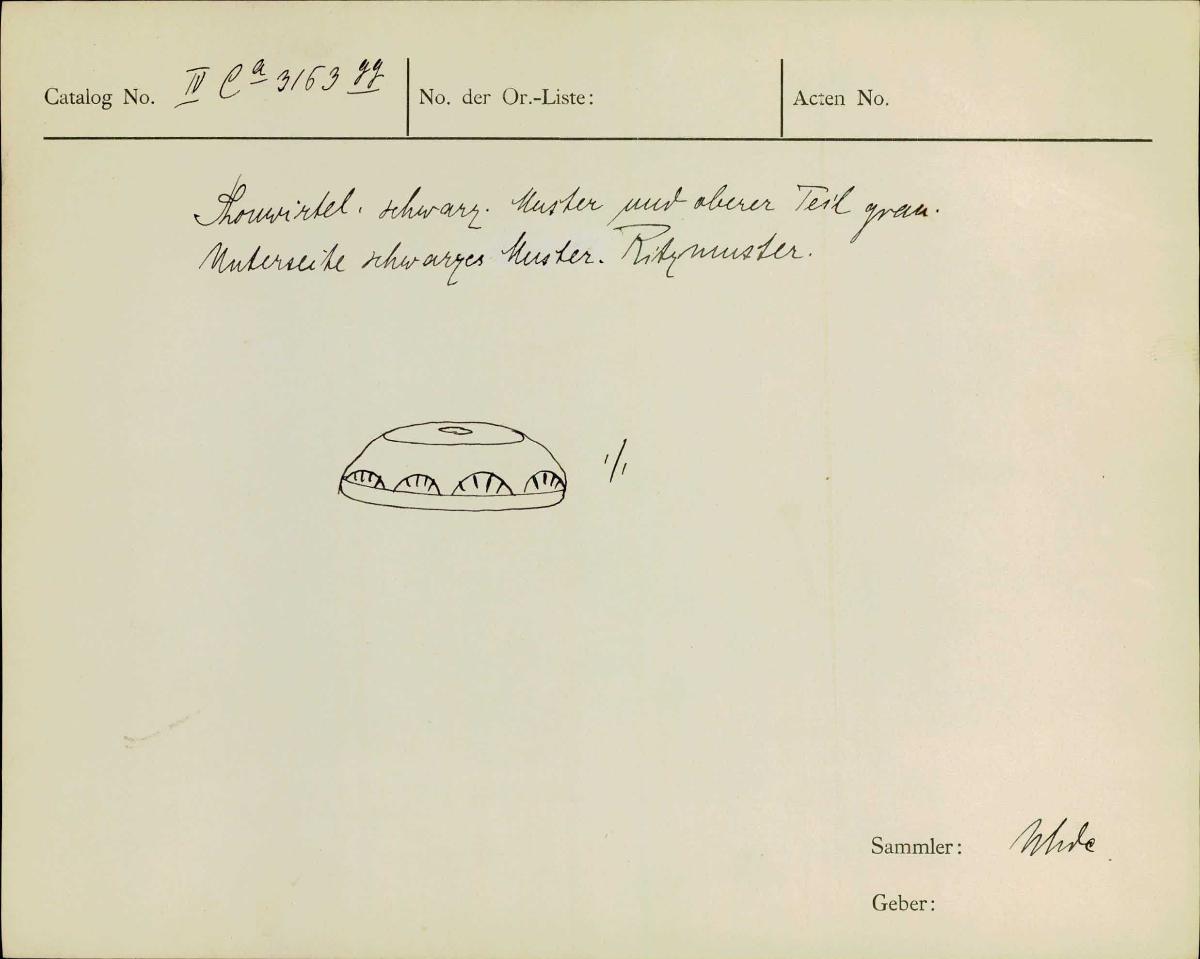 Catalog No. IV Ca 3163 gg
No. der Or.-Liste:
Acten No.
Thonwirtel. schwarz. Muster und oberer Teil grau.
Unterseite schwarzes Muster. Ritzmuster.
1/1
Sammler: Uhde
Geber: